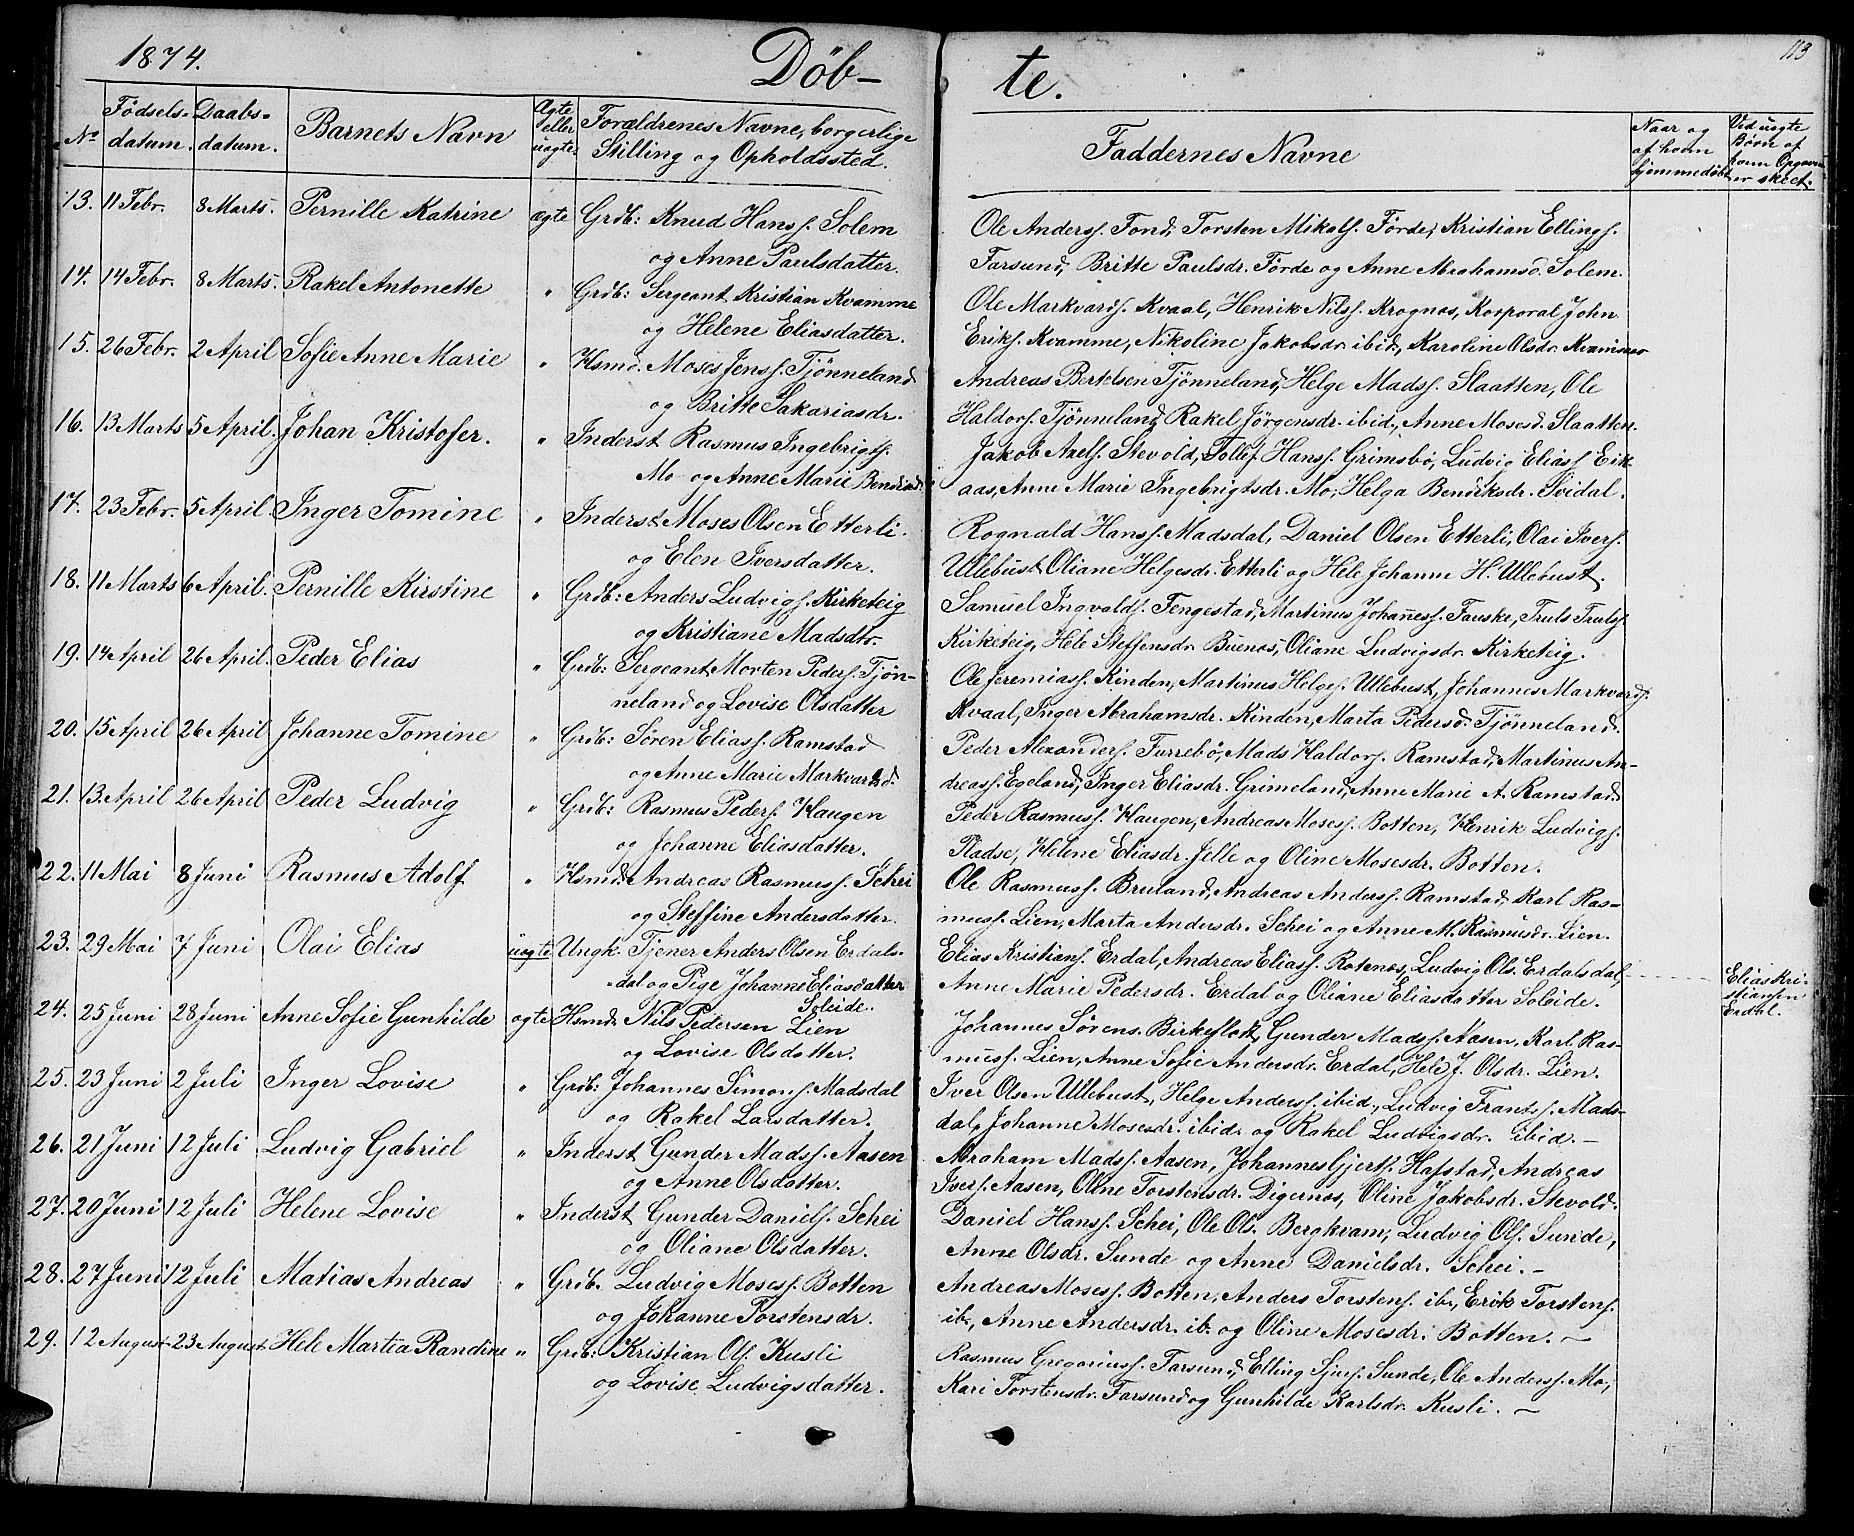 1874.
Döb-
te.
113
No
Fødsels-
datum.
Daabs-
datum.
Barnets Navn
Ægte
eller
uægte
Forældrenes Navne, borgerlige
Stilling og Opholdssted.
Faddernes Navne
Naar og
af hvem
hjemmedöbt
Ved uægte
Børn af
hvem Opgaven
er skeet.
13. 11 Febr. 8 Marts. Pernille Katrine ægte Grdb: Knud Hanss. Solem
og Anne Paulsdatter.
Ole Anderss. Fond, Torsten Mikals. Förde, Kristian Ellings.
Farsund, Britte Paulsdr. Förde og Anne Abrahamsd. Solem.
14. 14 Febr. 8 Marts. Rakel Antonette " Grdb: Sergeant Kristian Kvamme
og Helene Eliasdatter.
Ole Markvards. Kvaal, Henrik Nilss. Krognes, Korporal John
Eriks. Kvamme, Nikoline Jakobsdr. ibid., Karoline Olsdr. Kvamme
15. 26 Febr. 2 April Sofie Anne Marie " Hsmd. Moses Jenss. Tjönneland
og Britte Sakariasdr.
Andreas Bertelsen Tjönneland, Helge Madss. Slaatten, Ole
Haldors. Tjönneland, Rakel Jörgensdr. ibid., Anne Mosesd. Slaatten.
16. 13 Marts 5 April. Johan Kristofer. " Inderst Rasmus Ingebrigts.
Mo og Anne Marie Bendiksd.
Jakob Axels. Stevold, Tollef Hanss. Grimsbö, Ludvig Eliass. Eik-
aas, Anne Marie Ingebrigtsdr. Mo, Helga Bendiksdr. Svidal.
17. 23 Febr. 5 April. Inger Tomine " Inderst Moses Olsen Etterli.
og Elen Iversdatter.
Rognald Hanss. Madsdal, Daniel Olsen Etterli, Olai Ivers.
Ullebust, Oliane Helgesdr. Etterli og Hele Johanne H. Ullebust.
18. 11 Marts 6 April. Pernille Kirstine " Grdb: Anders Ludvigs. Kirketeig
og Kristiane Madsdtr.
Samuel Ingvalds. Fengestad, Martinus Johaness. Fauske, Truls Truls.
Kirketeig, Hele Steffensdr. Buenes, Oliane Ludvigsdr. Kirketeig.
19. 14 April 26 April. Peder Elias " Grdb: Sergeant Morten Peders. Tjön-
neland og Lovise Olsdatter
Ole Jeremiass. Kinden, Martinus Helges. Ullebust, Johannes Markvards.
Kvaal, Inger Abrahamsdr. Kinden, Marta Pedersd. Tjönneland.
20. 15 April 26 April Johanne Tomine " Grdb: Sören Eliass. Ramstad
og Anne Marie Markvardsd.
Peder Alexanders. Furrebö, Mads Haldors. Ramstad, Martinus An-
dreass. Egeland, Inger Eliasdr. Grimeland, Anne Marie A. Ramstad.
21. 13 April 26 April Peder Ludvig " Grdb: Rasmus Peders. Haugen
og Johanne Eliasdatter.
Peder Rasmuss. Haugen, Andreas Moses. Botten, Henrik Ludvigs.
Pladse, Helene Eliasdr. Jelle og Oline Mosesdr. Botten.
22. 11 Mai 8 Juni Rasmus Adolf " Hsmd. Andreas Rasmuss. Schei
og Steffine Andersdatter.
Ole Rasmuss. Bruland, Andreas Anderss. Ramstad, Karl Ras-
muss. Lien, Marta Andersdr. Schei og Anne M. Rasmusdr. Lien.
23. 29 Mai 7 Juni Olai Elias uægte Ungk. Tjener Anders Olsen Erdals-
dal og Pige Johanne Eliasdatter
Soleide.
Elias Kristians. Erdal, Andreas Eliass. Rotenes, Ludvig Ols. Erdalsdal,
Anne Marie Pedersdr. Erdal og Oliane Eliasdatter Soleide.
Elias Kri-
stiansen
Erdal.
24. 25 Juni 28 Juni Anne Sofie Gunhilde ægte Hsmd. Nils Pedersen Lien
og Lovise Olsdatter.
Johannes Sörens. Birkeflott, Gunder Madss. Aasen, Karl Ras-
muss. Lien, Anne Sofie Andersdr. Erdal, Hele J. Olsdr. Lien.
25. 23 Juni 2 Juli Inger Lovise " Grdb: Johannes Simons. Madsdal
og Rakel Larsdatter.
Iver Olsen Ullebust, Helge Anders. ibid., Ludvig Frants. Mads-
dal, Johanne Mosesdr. ibid. og Rakel Ludvigsdr. ibid. -
26. 21 Juni 12 Juli Ludvig Gabriel " Inderst Gunder Madss. Aasen
og Anne Olsdatter.
Abraham Madss. Aasen, Johannes Gjerts. Hafstad, Andreas
Ivers. Aasen, Oline Torstensdr. Digernes, Oline Jakobsdr. Stevold.
27. 20 Juni 12 Juli Helene Lovise " Inderst Gunder Daniels. Schei
og Oliane Olsdatter.
Daniel Hanss. Schei, Ole Ols. Bergkvam, Ludvig Ols. Sunde,
Anne Olsdr. Sunde og Anne Danielsdr. Schei. -
28. 27 Juni 12 Juli Matias Andreas " Grdb. Ludvig Moses. Botten
og Johanne Torstensdr.
Andreas Moses. Botten, Anders Torstens. ib., Erik Torstens.
ib., Anne Andersdr. ib. og Oline Mosesdr. Botten. -
29. 12 August 23 August Hele Martea Randine " Grdb: Kristian Ols. Kusli
og Lovise Ludvigsdatter.
Rasmus Gregoriuss. Farsund, Elling Sjurs. Sunde, Ole Anderss. Mo,
Kari Torstensdr. Farsund og Gunhilde Karlsdr. Kusli. -